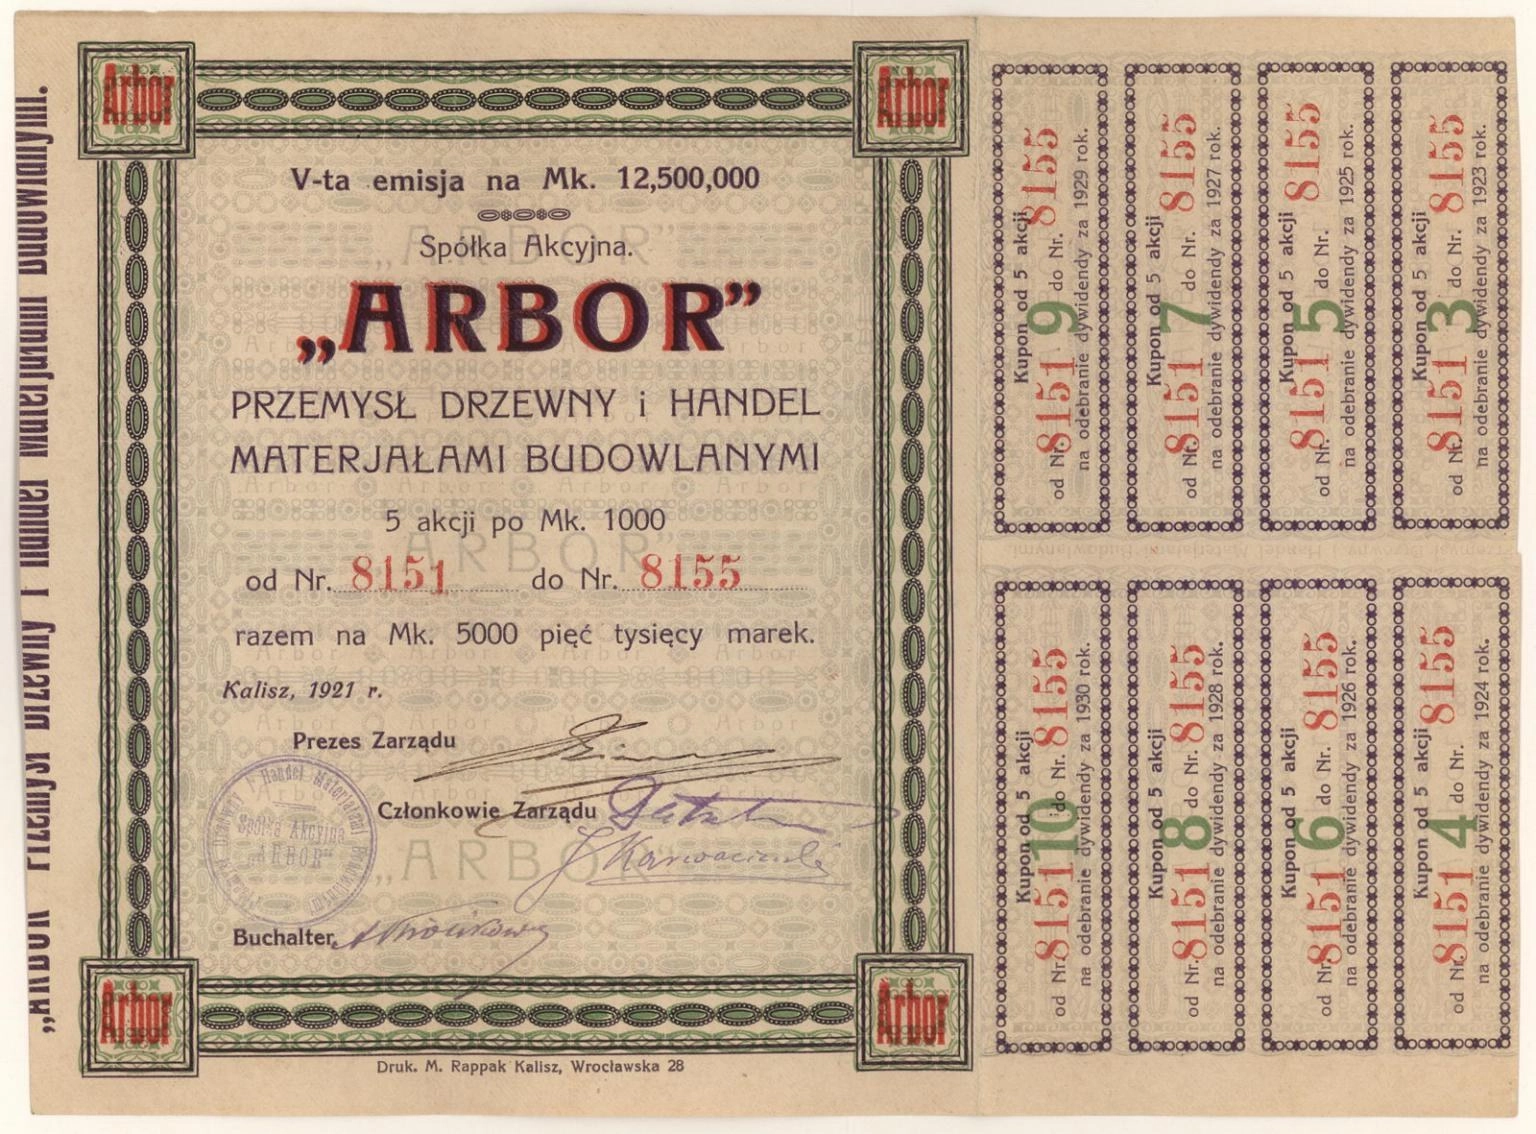 Arbor
Arbor
V-ta emisja na Mk. 12,500,000
Spółka Akcyjna.
„ARBOR”
PRZEMYSŁ DRZEWNY i HANDEL
MATERJAŁAMI BUDOWLANYMI
5 akcji po Mk. 1000
od Nr. 8151 do Nr. 8155
razem na Mk. 5000 pięć tysięcy marek.
Kalisz, 1921 r.
Prezes Zarządu
Członkowie Zarządu
Spółka Akcyjna
„ARBOR”
Buchalter
Arbor
Arbor
Druk. M. Rappak Kalisz, Wrocławska 28
„ARBOR” Przemysł Drzewny i Handel Materjałami Budowlanymi.
Kupon od 5 akcji
od Nr. 8151 9 do Nr. 8155
na odebranie dywidendy za 1929 rok.
Kupon od 5 akcji
od Nr. 8151 7 do Nr. 8155
na odebranie dywidendy za 1927 rok.
Kupon od 5 akcji
od Nr. 8151 5 do Nr. 8155
na odebranie dywidendy za 1925 rok.
Kupon od 5 akcji
od Nr. 8151 3 do Nr. 8155
na odebranie dywidendy za 1923 rok.
Kupon od 5 akcji
od Nr. 8151 10 do Nr. 8155
na odebranie dywidendy za 1930 rok.
Kupon od 5 akcji
od Nr. 8151 8 do Nr. 8155
na odebranie dywidendy za 1928 rok.
Kupon od 5 akcji
od Nr. 8151 6 do Nr. 8155
na odebranie dywidendy za 1926 rok.
Kupon od 5 akcji
od Nr. 8151 4 do Nr. 8155
na odebranie dywidendy za 1924 rok.